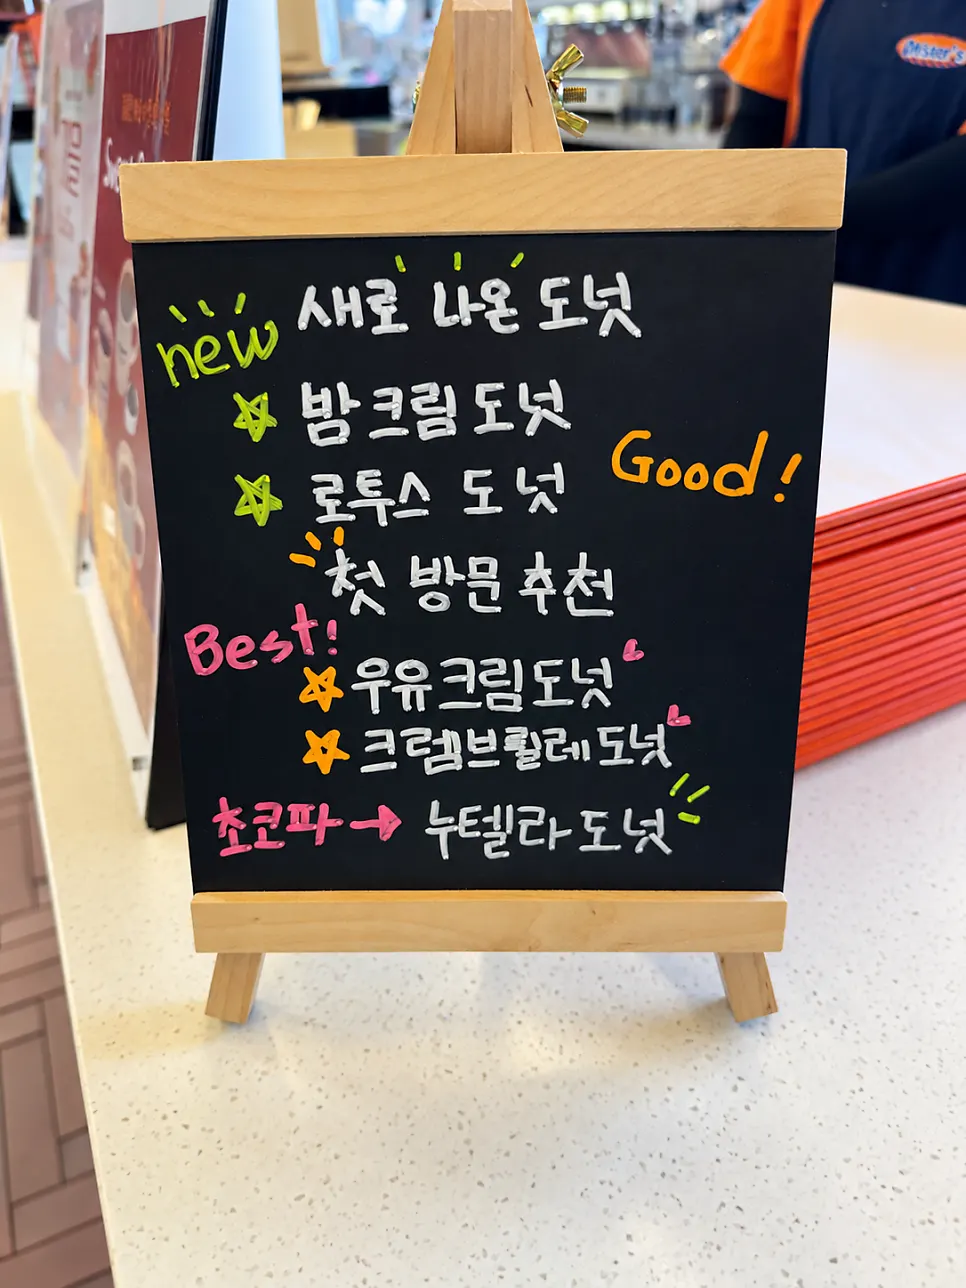 Mister's
new 새로 나온 도넛
밤크림도넛
로투스 도넛
Good!
첫 방문 추천
Best!
우유크림도넛
크렘브륄레도넛
초코파→ 누텔라도넛